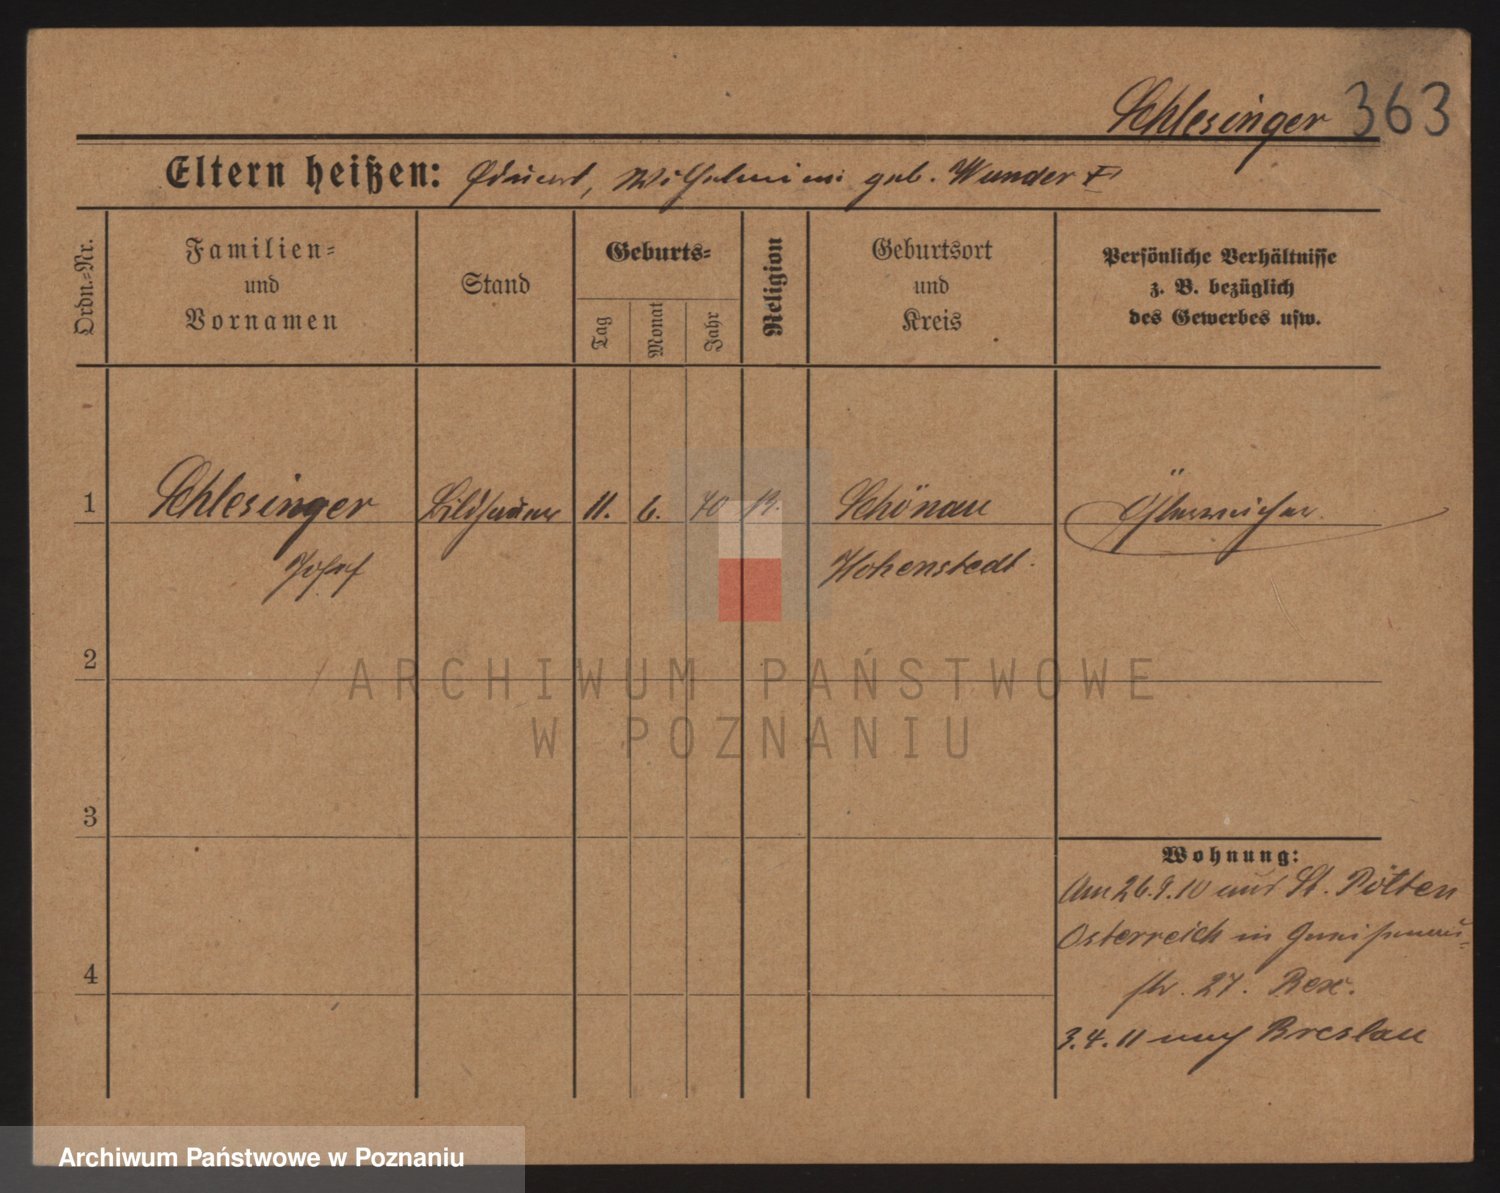 Schlesinger 363
Eltern heißen: Eduard, Wilhelmine geb. Wunder
Ordn.-Nr.
Familien-
und
Vornamen
Stand
Geburts-
Tag
Monat
Jahr
Religion
Geburtsort
und
Kreis
Persönliche Verhältnisse
z. B. bezüglich
des Gewerbes usw.
1 Schlesinger Bildhauer 11. 6. 70 Schönau Österreicher.
Josef Hohenstedt.
2
ARCHIWUM PAŃSTWOWE
W POZNANIU
3
Wohnung:
Am 26.9.10 aus St. Pölten
Österreich in
4
str. 27. Rex.
3.4.11 nach Breslau
Archiwum Państwowe w Poznaniu